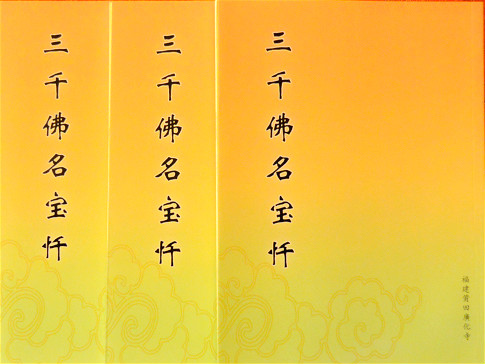 三千佛名宝忏
三千佛名宝忏
三千佛名宝忏
福建莆田廣化寺